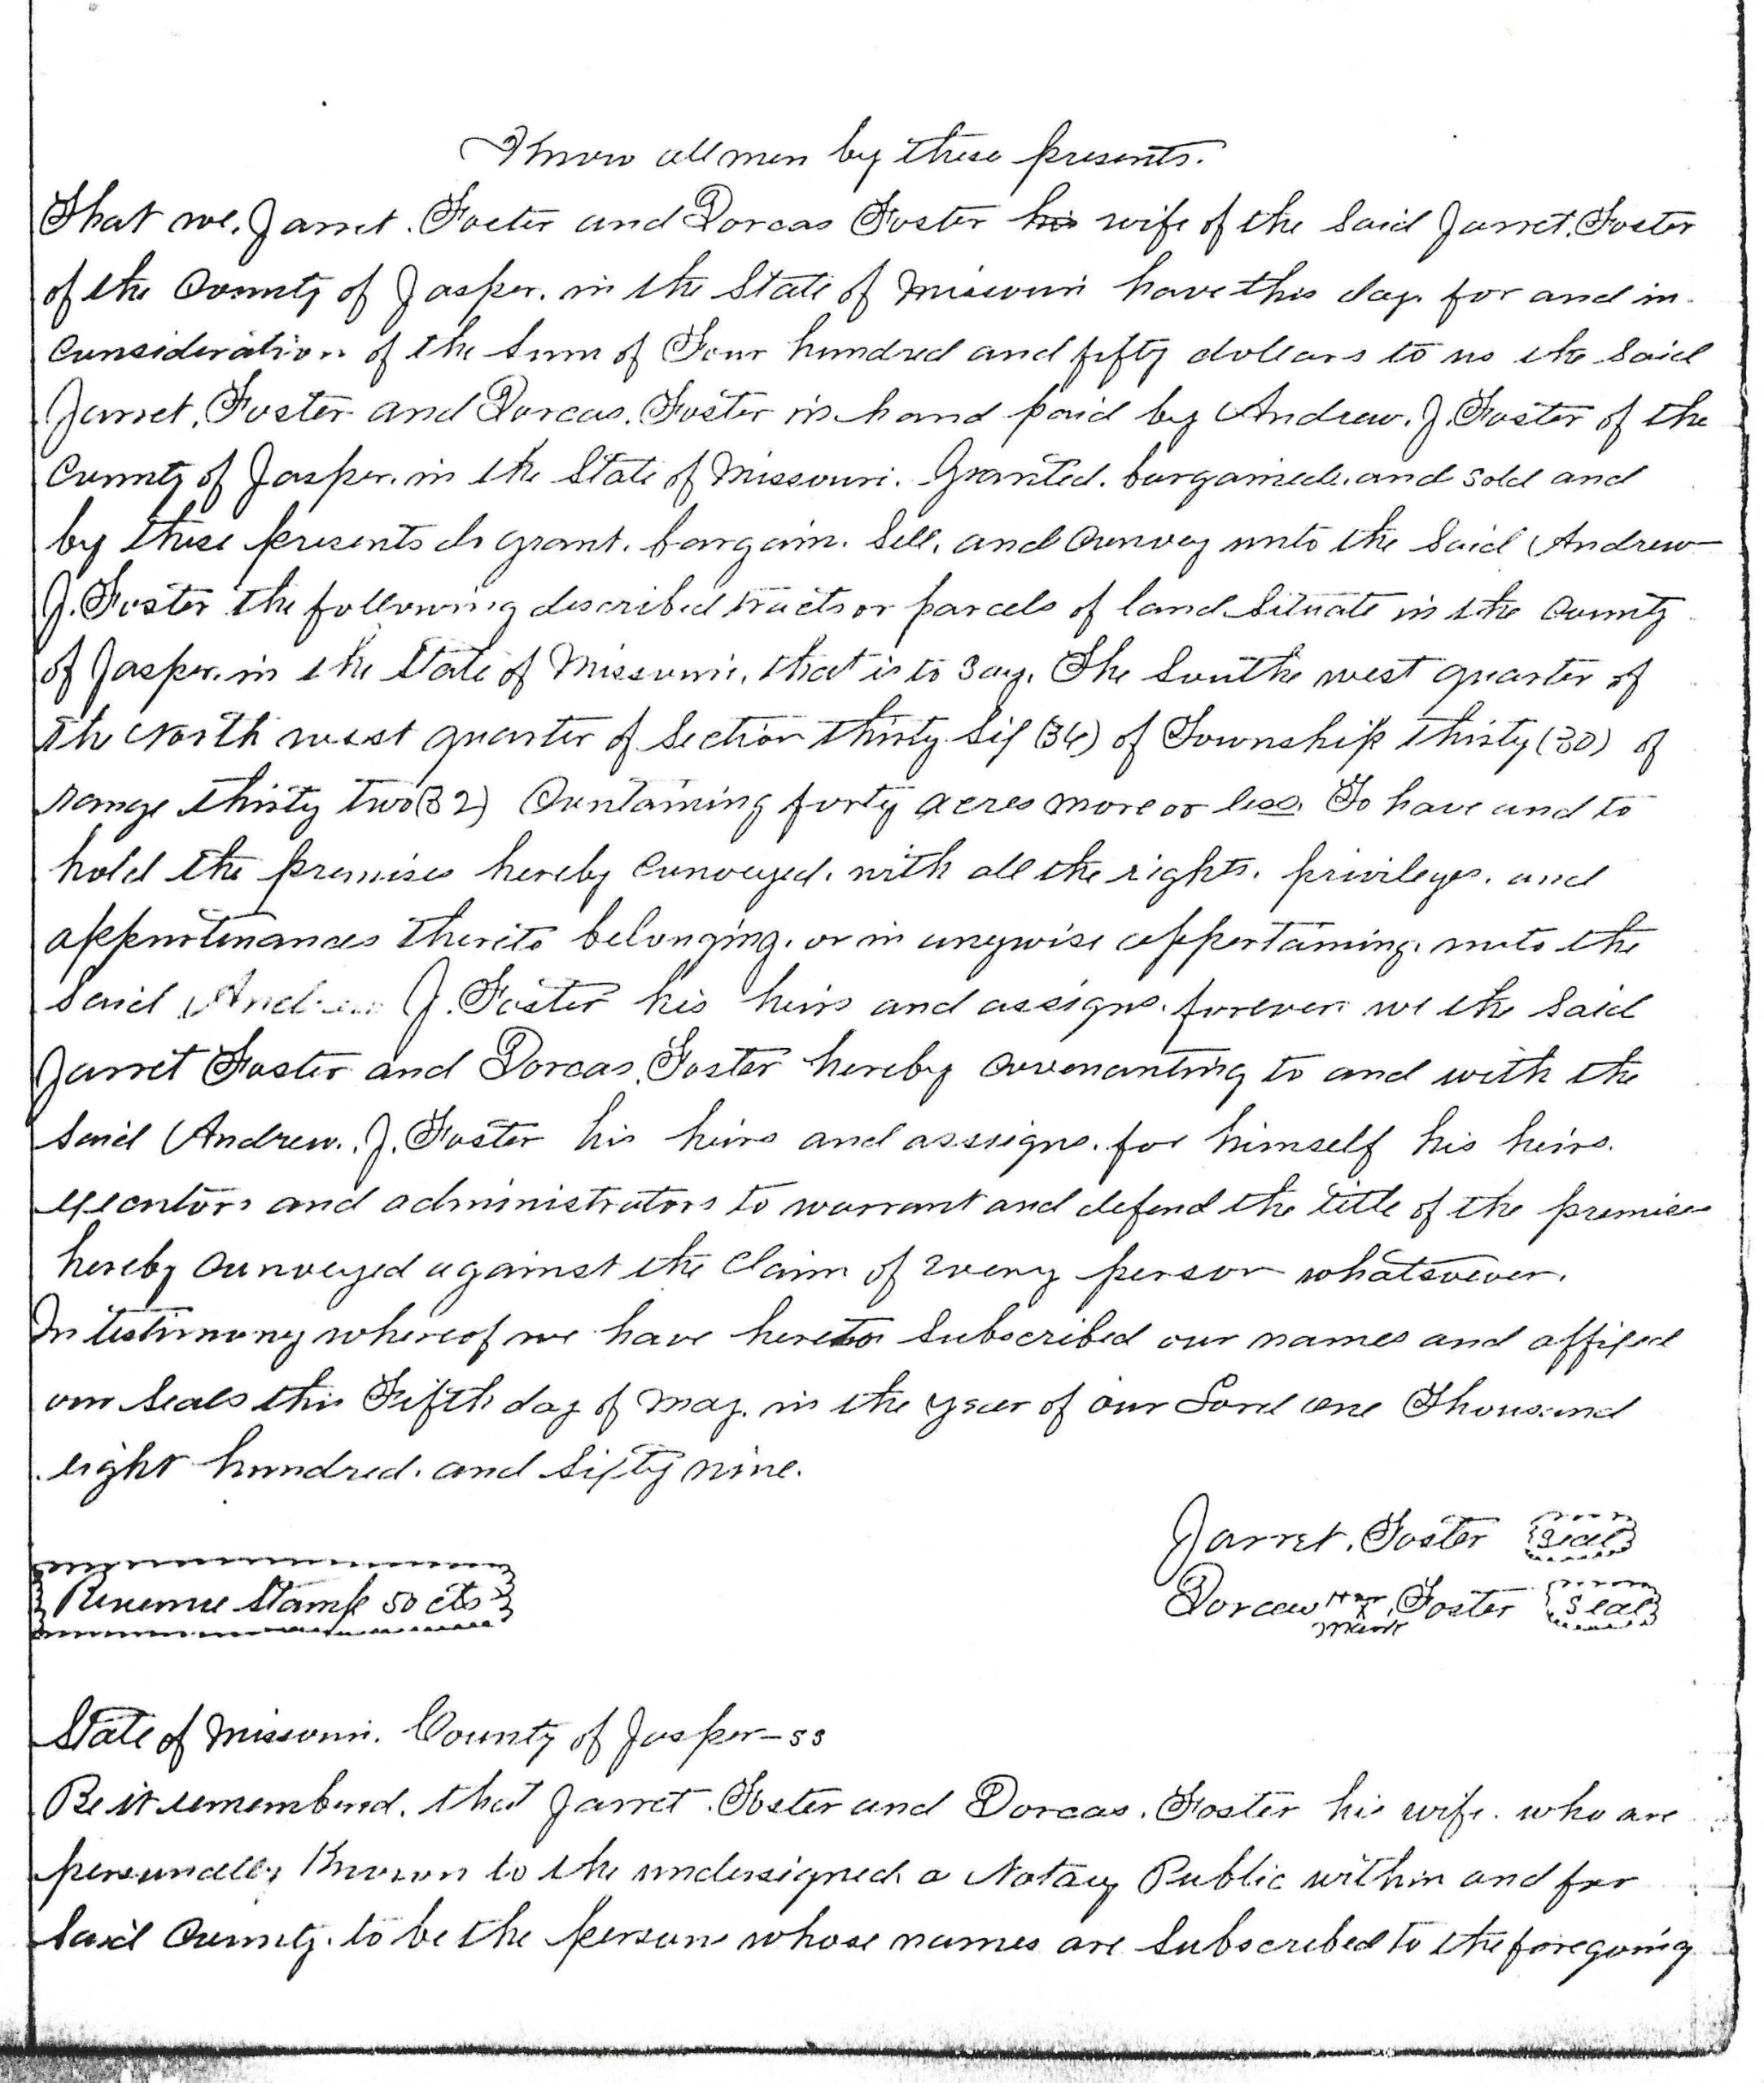 Know all men by these presents.
That we, Jarret. Foster and Dorcas Foster his wife of the said Jarret. Foster
of the County of Jasper. in the State of Missouri have this day. for and in
Consideration of the sum of Four hundred and fifty dollars to us the said
Jarret. Foster and Dorcas. Foster in hand paid by Andrew. J. Foster of the
County of Jasper. in the State of Missouri. Granted. bargained. and sold and
by these presents do grant. bargain. Sell. and Convey unto the said Andrew
J. Foster the following described tracts or parcels of land Situate in the County
of Jasper. in the State of Missouri, that is to say. The South west quarter of
the North west quarter of Section thirty Six (36) of Township thirty (30) of
range thirty two (32) Containing forty acres more or less. To have and to
hold the premises hereby Conveyed. with all the rights. privileges. and
appurtenances thereto belonging. or in anywise appertaining. unto the
Said Andrew J. Foster his heirs and assigns. forever. we the Said
Jarret Foster and Dorcas. Foster hereby Covenanting to and with the
Said Andrew. J. Foster his heirs and assigns. for himself his heirs.
executors and administrators to warrant and defend the title of the premises
hereby Conveyed against the Claim of every person whatsoever.
In testimony whereof we have hereto Subscribed our names and affixed
our Seals this Fifth day of May. in the year of our Lord one Thousand
eight hundred. and Sixty nine.
Jarret. Foster Seal
Revenue Stamp 50 cts
Dorcas her x mark Foster Seal
State of Missouri. County of Jasper - ss
Be it remembered. that Jarret. Foster and Dorcas. Foster his wife. who are
personally Known to the undersigned a Notary Public within and for
Said County. to be the persons whose names are Subscribed to the foregoing